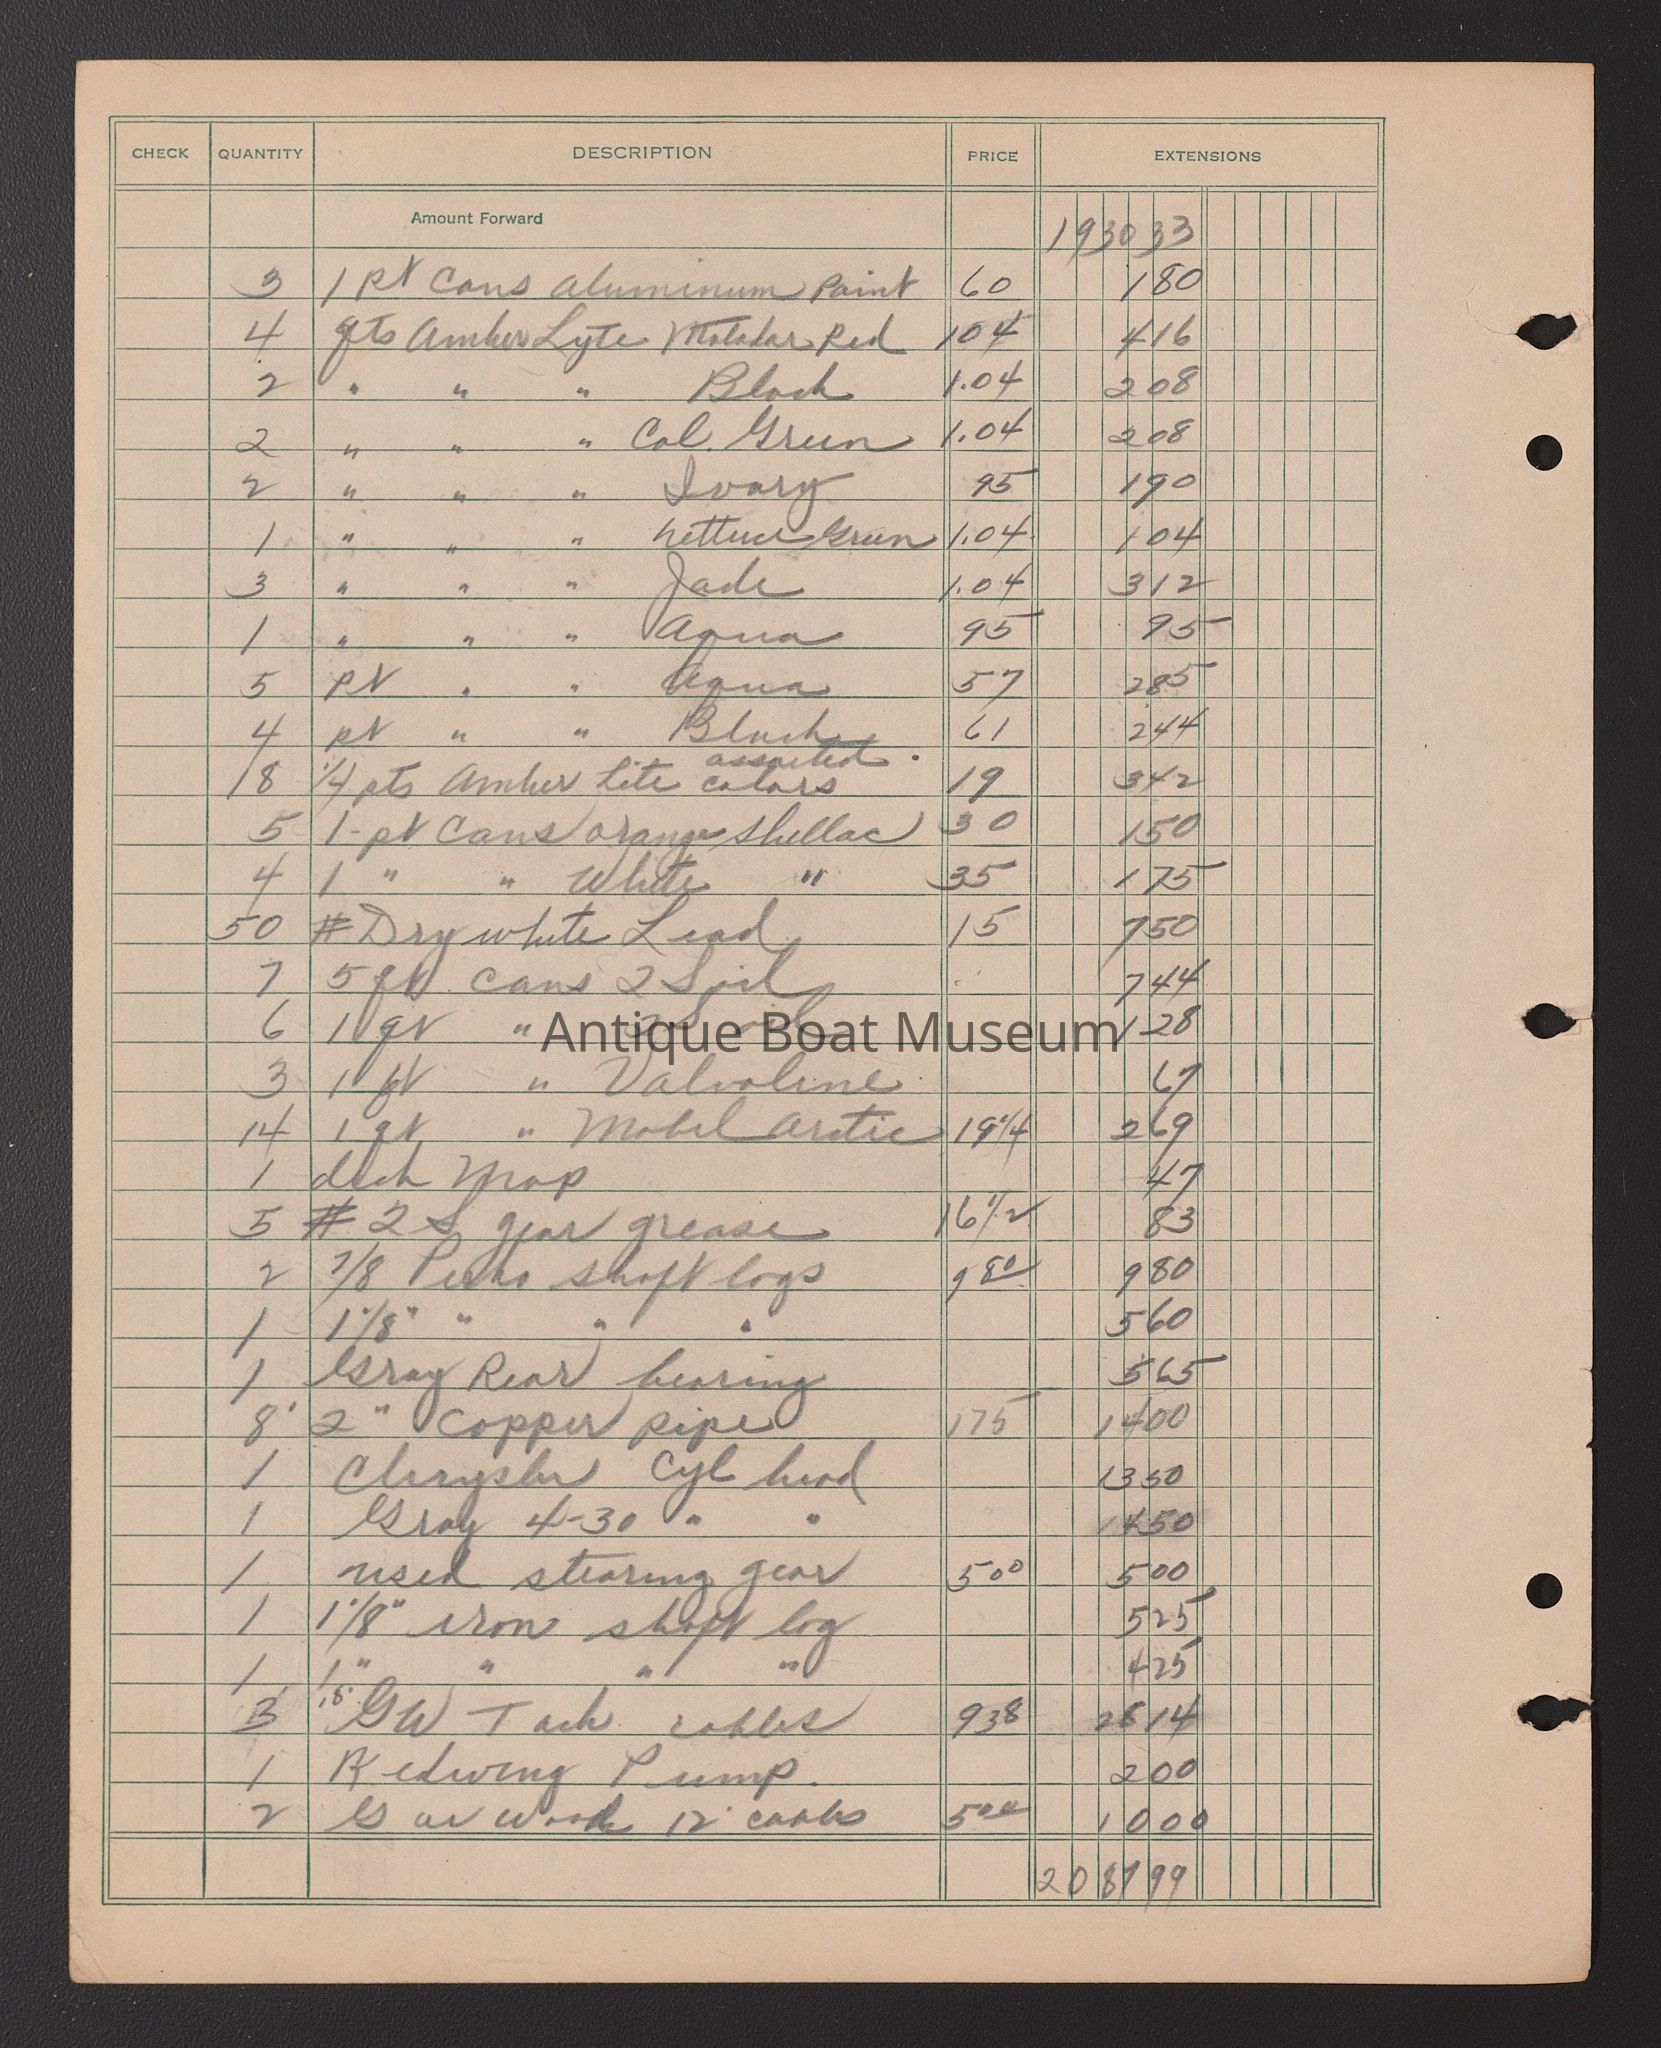 CHECK QUANTITY DESCRIPTION PRICE EXTENSIONS
Amount Forward 1930 33
3 1 pt Cans aluminum paint 60 1 80
4 qts Amber Lyte Matador Red 104 4 16
2 " " " Black 1.04 2 08
2 " " " Col. Green 1.04 2 08
2 " " " Ivory 95 1 90
1 " " " Lettuce Green 1.04 1 04
3 " " " Jade 1.04 3 12
1 " " " Aqua 95 95
5 pt " " Aqua 57 2 85
4 pt " " Black 61 2 44
18 1/4 pts Amber Lite assorted colors 19 3 42
5 1-pt Cans orange shellac 30 1 50
4 1 " " White " 35 1 75
50 # Dry white Lead 15 7 50
7 5 qt cans 2 S oil 7 44
6 1 qt " 2 S oil 1 28
3 1 qt " Valvoline 67
14 1 qt " Mobil arctic 19 1/4 2 69
1 deck mop 47
5 # 2 S gear grease 16 1/2 83
2 7/8 Perko shaft logs 9 80 9 80
1 1 1/8" " " " 5 60
1 Gray Rear bearing 5 65
8' 2" copper pipe 175 14 00
1 Chrysler Cyl head 13 50
1 Gray 4-30 " " 14 50
1 used stearing gear 5 00 5 00
1 1 1/8" iron shaft log 5 25
1 1" " " " 4 25
3 18' GW Tach cables 9 38 28 14
1 Redwing Pump. 2 00
2 Gar Wood 12' cables 5 00 10 00
2087 99
Antique Boat Museum